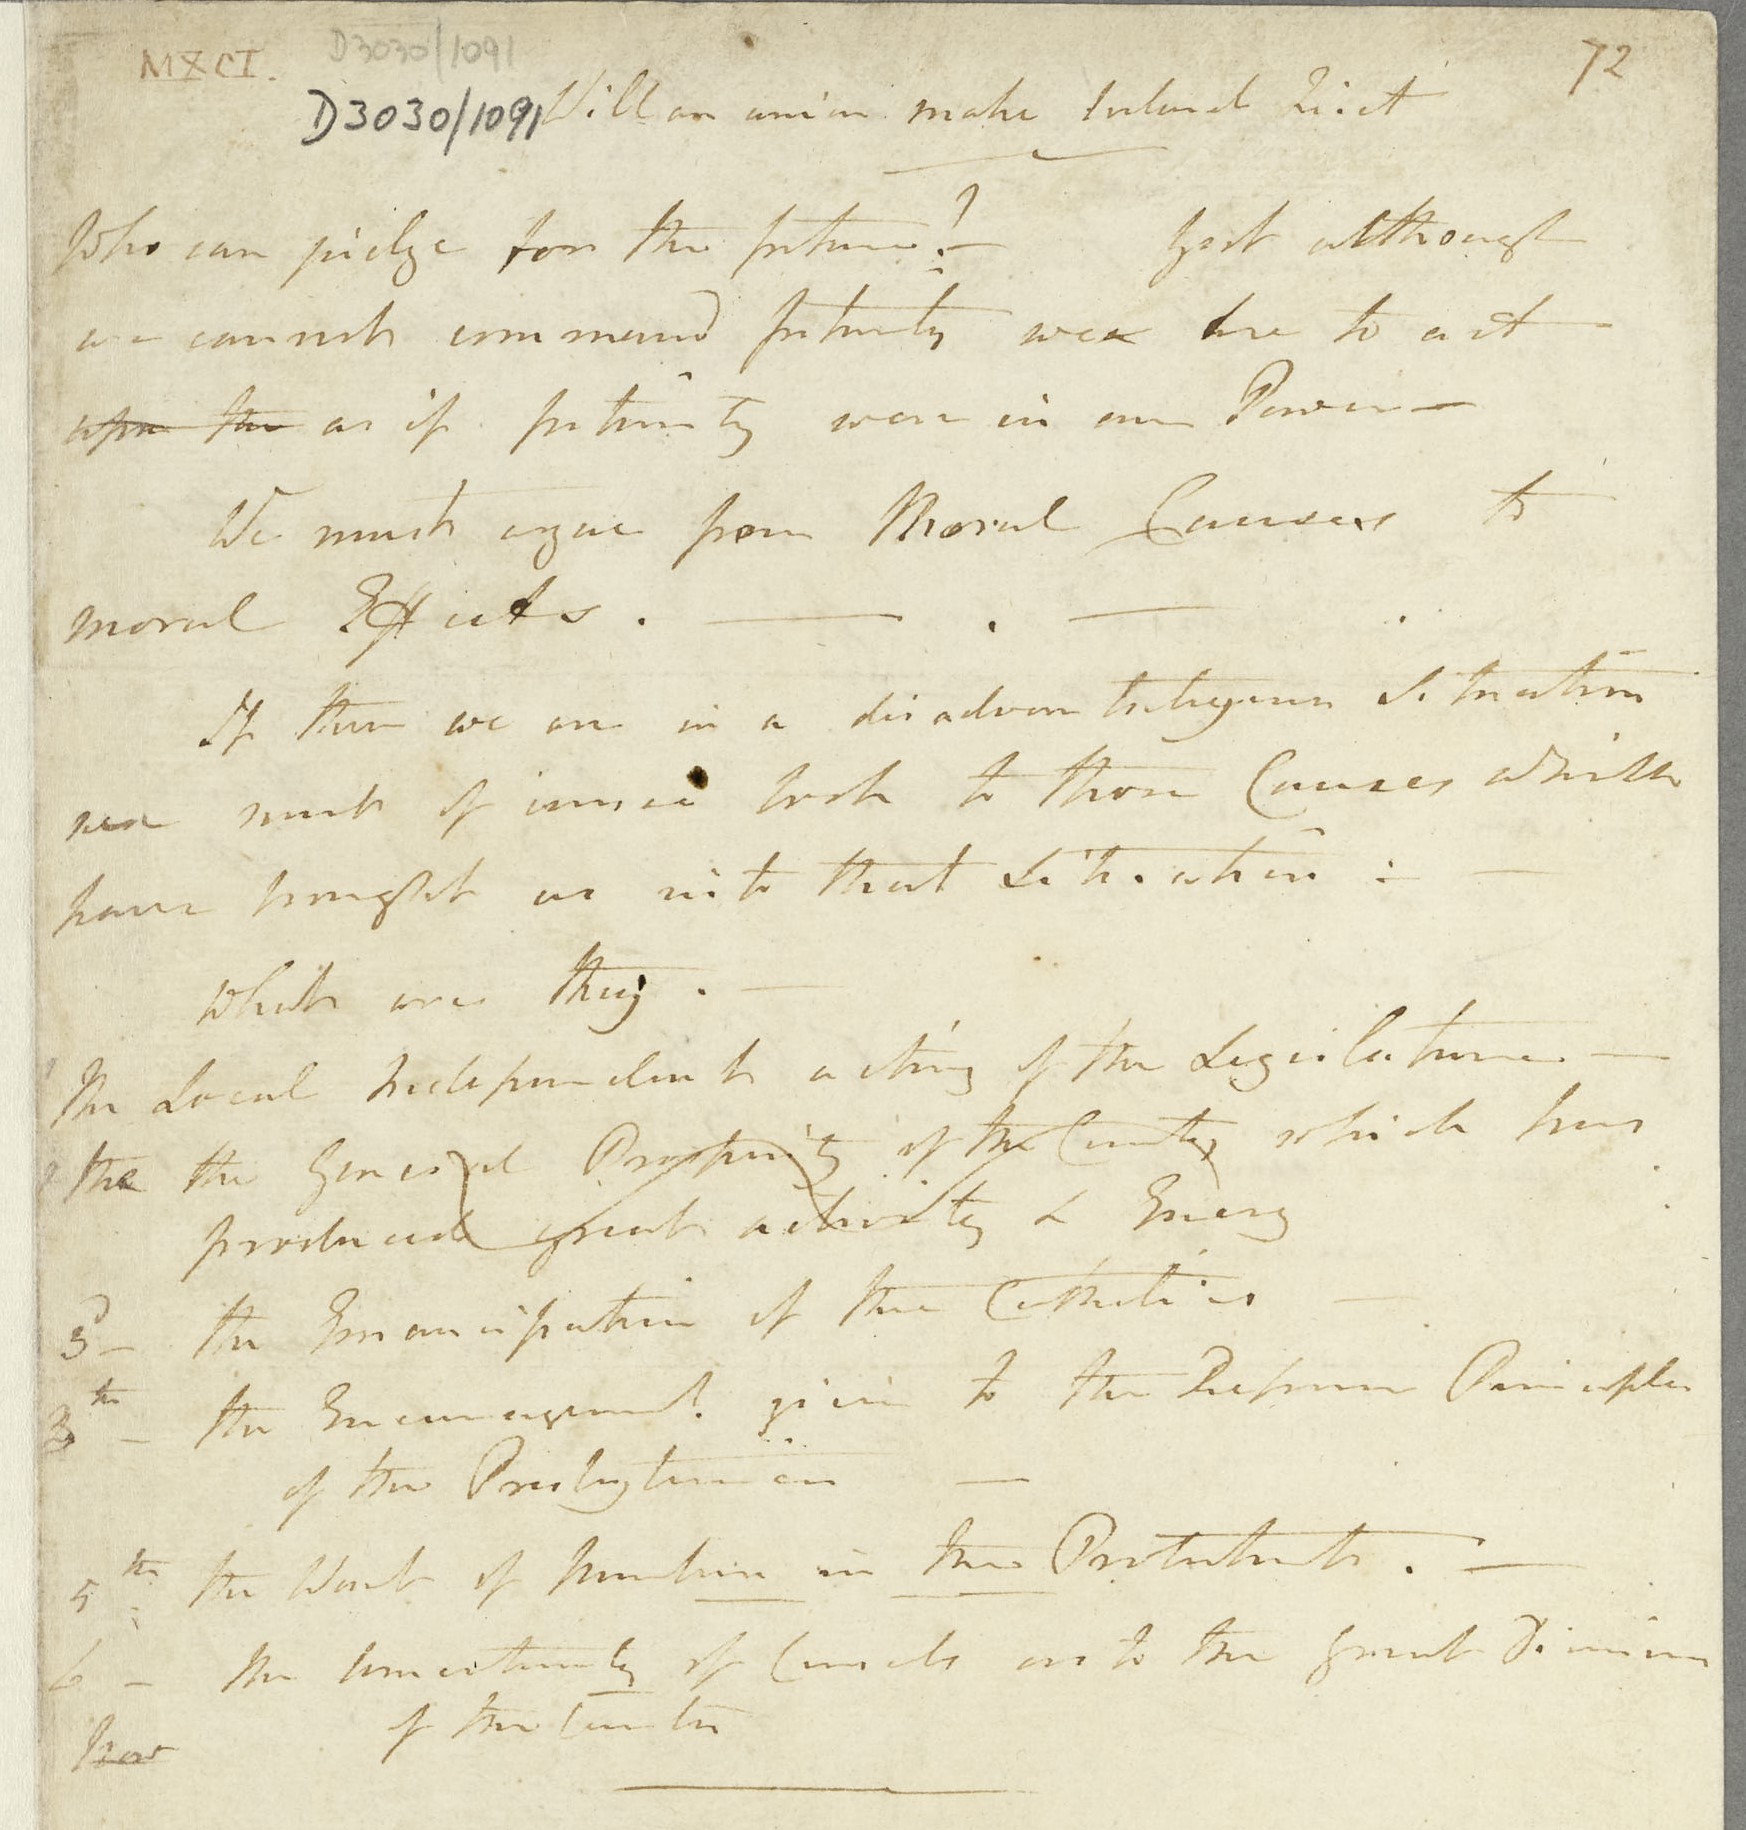 MXCI. D3030/1091 72
D3030/1091 Will an union make Ireland Quiet
Who can judge for the future? – Yet although
we cannot command futurity we are to act
upon the as if futurity were in our Power –
We must argue from Moral Causes to
moral Effects. — . — .
If then we are in a disadvantageous Situation
we must of course look to those Causes which
have brought us into that Situation : —
What are they . —
The Local Independent acting of the Legislature. —
the the General Prosperity of the Country which has
produced great activity & Energy
3d – the Emancipation of the Catholics —
the Encouragement given to the Reform Principles
of the Presbyterian —
5th the Want of Number in the Protestants . —
6 – the uncertainty of Councils as to the great Division
of the Country
how